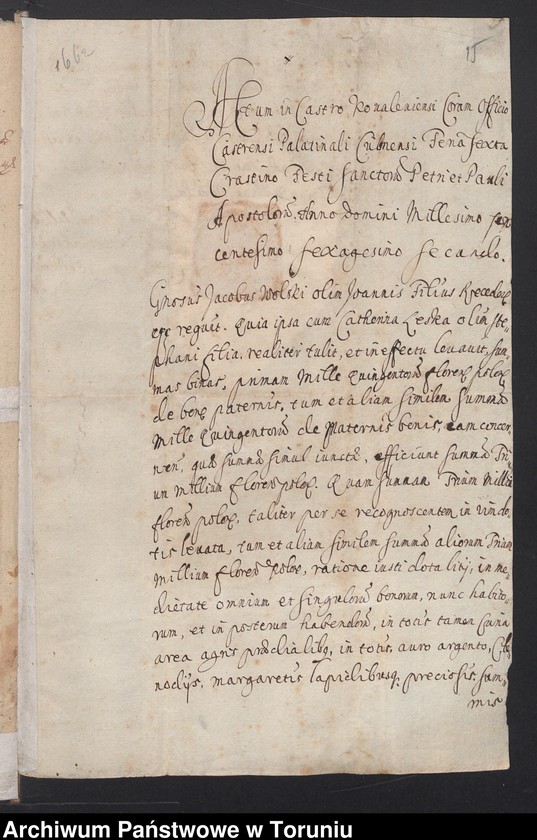 1662
15
Actum in Castro Kovaleviensi Coram Officio
Castrensi Palatinali Culmensi Feria sexta
Crastino Festi Sanctorũ Petri et Pauli
Apostolorũ. Anno Domini Millesimo sex
centesimo sexagesimo secundo.
Gnosus Jacobus Wolski olim Joannis Filius
regit. Quia ipsa cum Catherina Leska olim Ste-
phani filia, realiter tulit, et in effectu levavit, sum
mas binas, primam Mille Quingentorũ floren polox
de bon paternis, tum et aliam similem summã
Mille Quingentorũ de Maternis bonis, eam concer-
nen, quæ summæ simul iunctæ, efficiunt summã Tri
um millium floren polox. Quam summam Trium Milliũ
floren polox, taliter per se recognoscentem, in vim do-
tis levata, tum et aliam similem summã aliorum Trium
Millium floren Polox, ratione iusti dotalitij, in me-
dietate omnium et singulorũ bonorum, nunc habito-
rum, et in posterum habendorũ, in totis tamen Curia
area agris prædialibq, in totis, auro argento,
nodijs, margaretis Lapidibusq preciosis, sum-
mis
Archiwum Państwowe w Toruniu